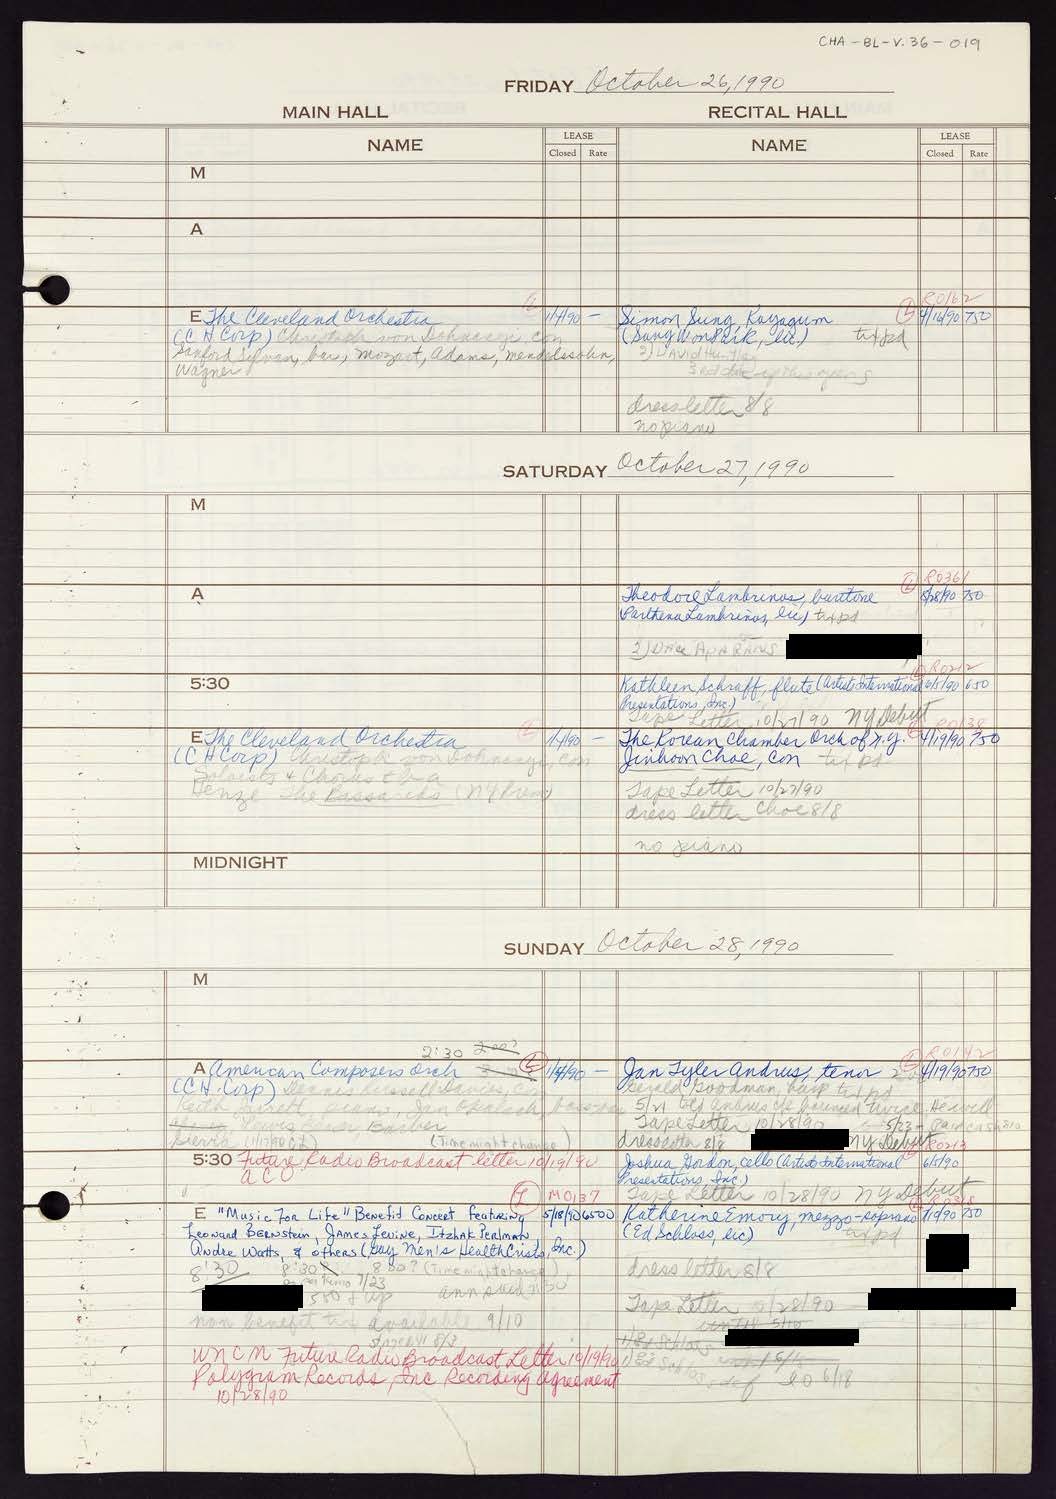 CHA-BL-V.36-019
FRIDAY October 26, 1990
MAIN HALL
RECITAL HALL
NAME
LEASE
Closed Rate
NAME
LEASE
Closed Rate
M
A
E The Cleveland Orchestra 1/4/90 —
(CH Corp) Christoph von Dohnanyi, con
Sanford Sylvan, bar, Mozart, Adams, Mendelssohn,
Wagner
R0162
Simon Sung, Kayagum L 4/16/90 750
(Sung Won Park, lic) tix pd
2) David
3rd
dress letter 8/8
no piano
SATURDAY October 27, 1990
M
A
R0361
Theodore Lambrinos, baritone L 8/28/90 750
(Parthena Lambrinos, lic) tix pd
2)
5:30
R0212
Kathleen Schraff, flute (Artists International 6/5/90 650
Presentations, Inc.)
Tape Letter 10/27/90 NY Debut
E The Cleveland Orchestra 1/4/90 —
(CH Corp) Christoph von Dohnanyi, con
Soloists & Chorus tba
Henze The Bassarids (NY Prem)
R0138
The Korean Chamber Orch of N.Y. 4/19/90 750
Jinhoon Choe, con tix pd
Tape Letter 10/27/90
dress letter Choe 8/8
no piano
MIDNIGHT
SUNDAY October 28, 1990
M
2:30
A American Composers Orch L 1/4/90 —
(CH Corp) Dennis Russell Davies, con
Keith Jarrett, piano, Jan
Barber
(Time might change)
R0142
Jan Tyler Andrus, tenor 4/19/90 750
Gerald Goodman, harp tix pd
5/21
Tape Letter 10/28/90
dress letter 8/8 NY Debut
5:30 Future Radio Broadcast letter 10/19/90
ACO
R0213
Joshua Gordon, cello (Artists International 6/5/90
Presentations, Inc.)
Tape Letter 10/28/90 NY Debut
L M0137
E "Music For Life" Benefit Concert featuring 5/18/90 6500
Leonard Bernstein, James Levine, Itzhak Perlman,
Andre Watts, & others (Gay Men's Health Crisis, Inc.)
8:30 8:30 8:00? (Time might change)
7/23
580 & up
non benefit tix available 9/10
WNCN Future Radio Broadcast Letter 10/19/90
Polygram Records, Inc Recording Agreement
10/28/90
Katherine Emory, mezzo-soprano 750
(Ed Schloss, lic) tix pd
dress letter 8/8
Tape Letter 10/28/90
until 5/10
6/18